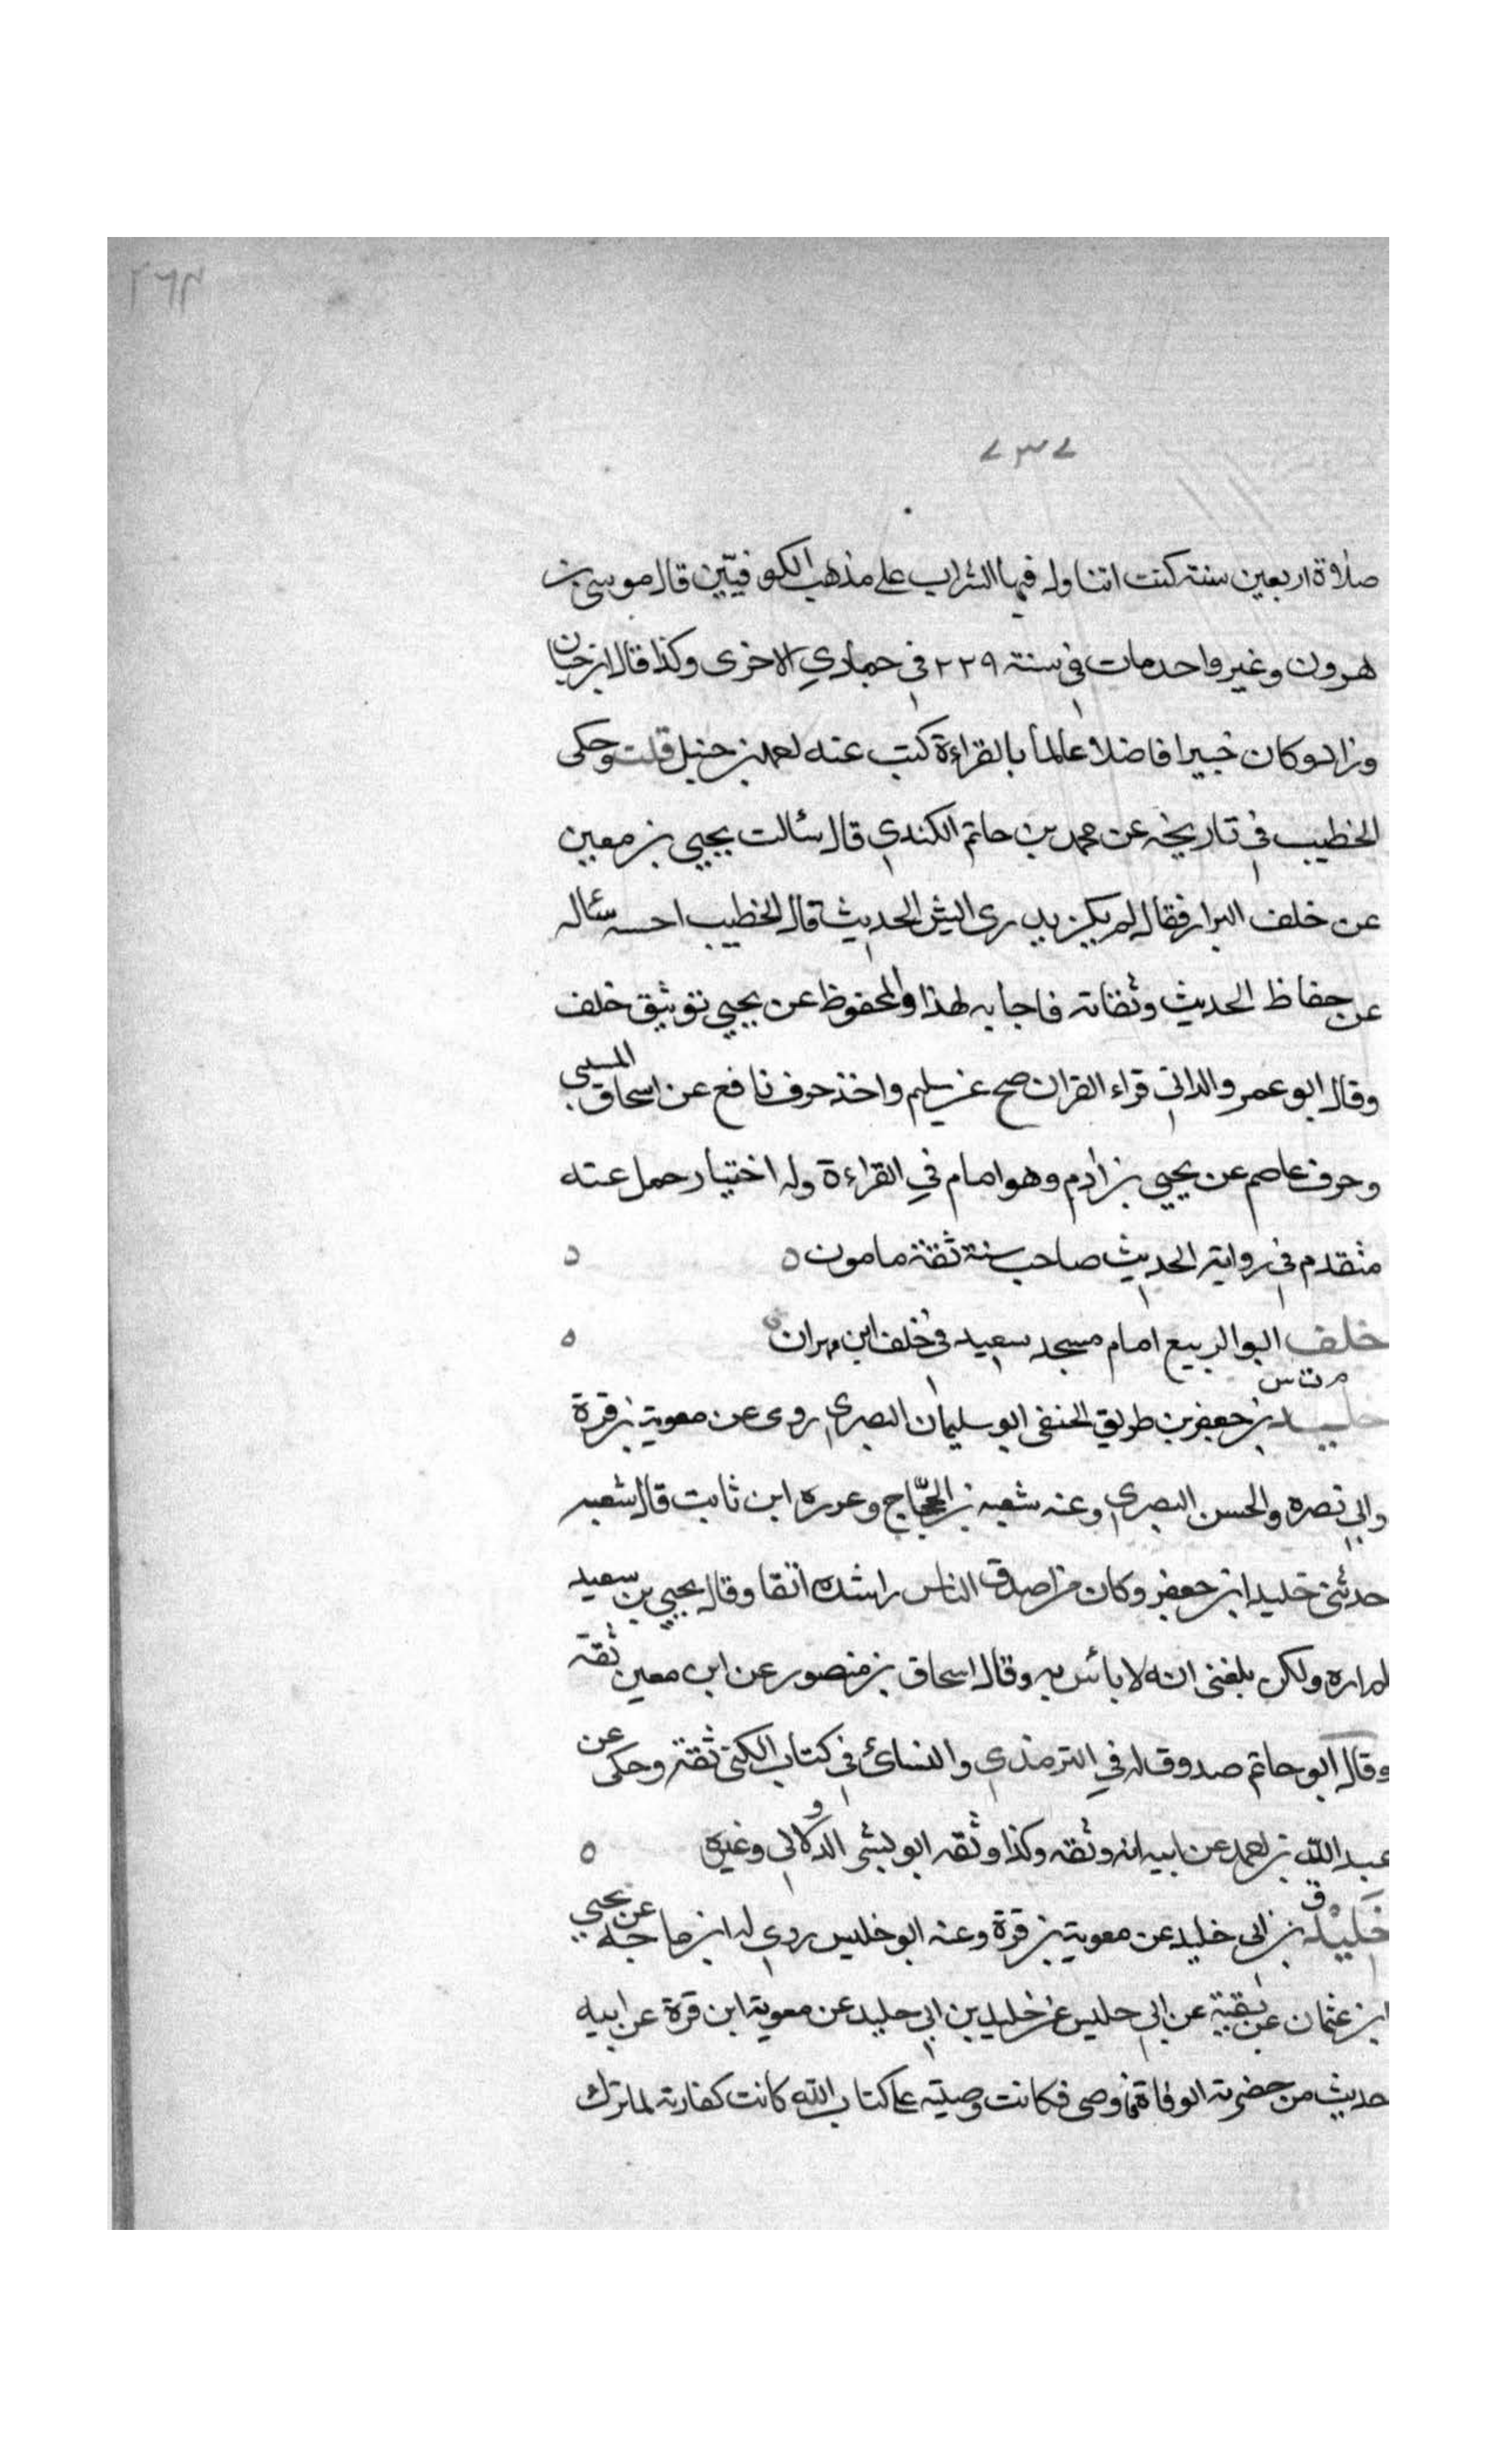 ٢٦٣
٧٣٧
صلاة اربعين سنة كنت اتناول فيها الشراب على مذهب الكوفيّين قال موسى بن
هرون وغير واحد مات في سنة ٢٢٩ في جمادي الاخرى وكذا قال ابن حبان
وزاد وكان خبيرا فاضلا عالما بالقراءة كتب عنه احمد بن حنبل قلت وحكى
الخطيب في تاريخه عن محمد بن حاتم الكندي قال سئالت يحيى بن معين
عن خلف البزار فقال لم يكن يدرى ايش الحديث قال الخطيب احسبه سئاله
عن حفاظ الحديث وثقاته فاجابه لهذا والمحفوظ عن يحيى توثيق خلف
وقال ابو عمرو الدانى قراء القران صح عن سليم واخذ حرف نافع عن اسحاق المسيبى
وحرف عاصم عن يحيى بن ادم وهو امام في القراءة وله اختيار حمل عنه
متقدم في رواية الحديث صاحب سنة ثقة مامون ٥ ٥
خلف ابو الربيع امام مسجد سعيد في خلف ابن مهران ٥
م ت س
خليد بن جعفر بن طريق الحنفى ابو سليمان البصرى روى عن معوية بن قرة
وابى نصره والحسن البصري وعنه شعبه بن الحجّاج وعزره ابن ثابت قال شعبه
حدثنى خليد ابن جعفر وكان من اصدق الناس واشده اتقا وقال يحيى بن سعيد
لم اره ولكن بلغنى انه لا بائس به وقال اسحاق بن منصور عن ابن معين ثقة
وقال ابو حاتم صدوق له في الترمذي والنسائ في كتاب الكنى ثقة وحكى عن
عبد الله بن احمد عن ابيه انه وثقه وكذا وثقه ابو بشر الدولابى وغيره ٥
ق
خَلِيْد بن ابى خليد عن معوية بن قرة وعنه ابو حلبس روى له ابن ماجه عن يحيى
ابن عثمان عن بقية عن ابى حلبس عن خليد بن ابى خليد عن معوية ابن قرة عن ابيه
حديث من حضرته الوفاة فاوصى فكانت وصيته على كتاب الله كانت كفارته لما ترك